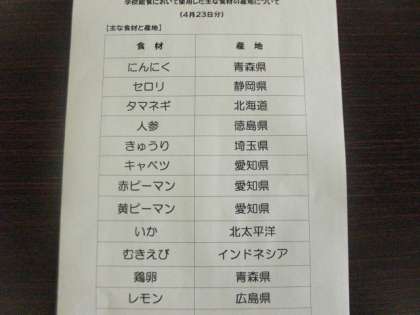 学校給食において使用した主な食材の産地について
(4月23日分)
[主な食材と産地]
食材 産地
にんにく 青森県
セロリ 静岡県
タマネギ 北海道
人参 徳島県
きゅうり 埼玉県
キャベツ 愛知県
赤ピーマン 愛知県
黄ピーマン 愛知県
いか 北太平洋
むきえび インドネシア
鶏卵 青森県
レモン 広島県